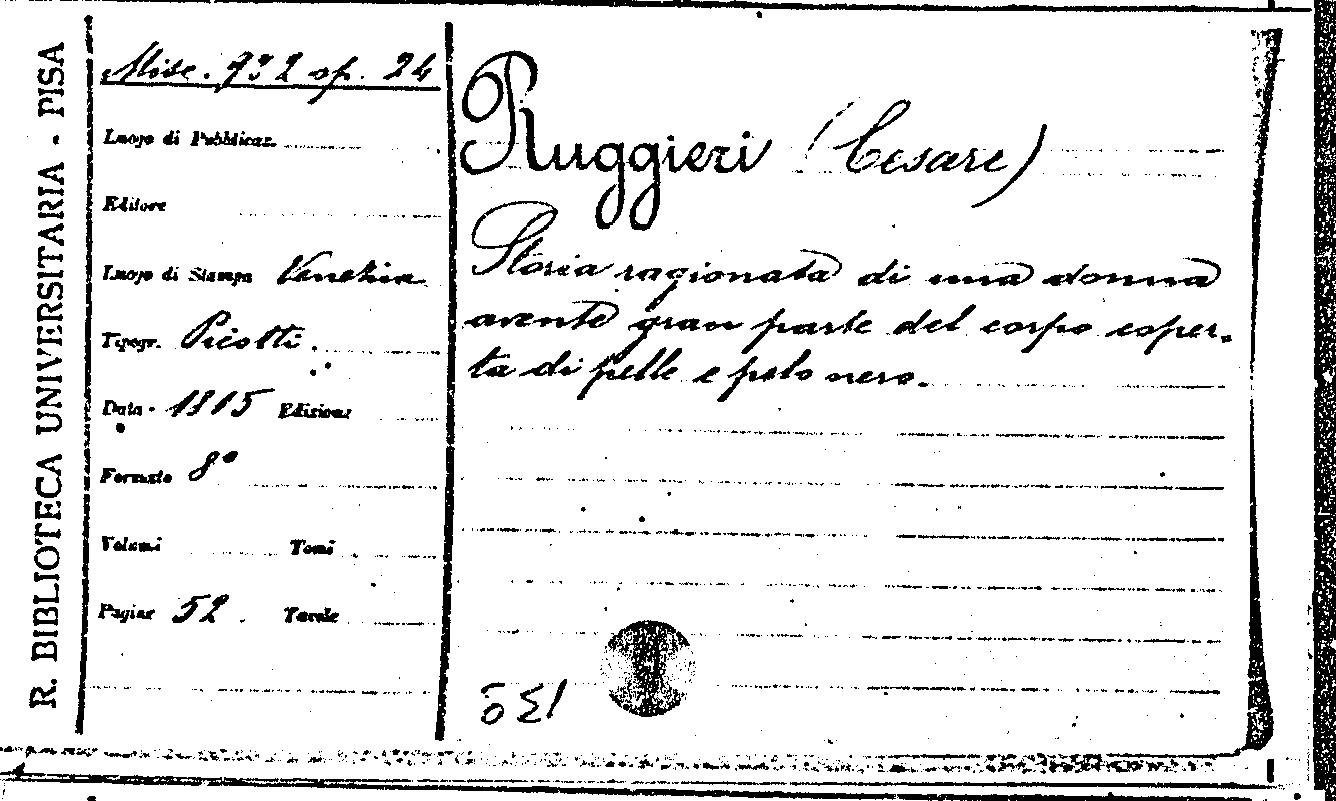 R. BIBLIOTECA UNIVERSITARIA - PISA
Misc. 732 op. 24
Luogo di Pubblicaz.
Editore
Luogo di Stampa Venezia
Tipogr. Picotti.
Data - 1815 Edizione
Formato 8°
Volumi Tomi
Pagine 52. Tavole
Ruggieri (Cesare)
Storia ragionata di una donna
avente gran parte del corpo coper-
ta di pelle e pelo nero.